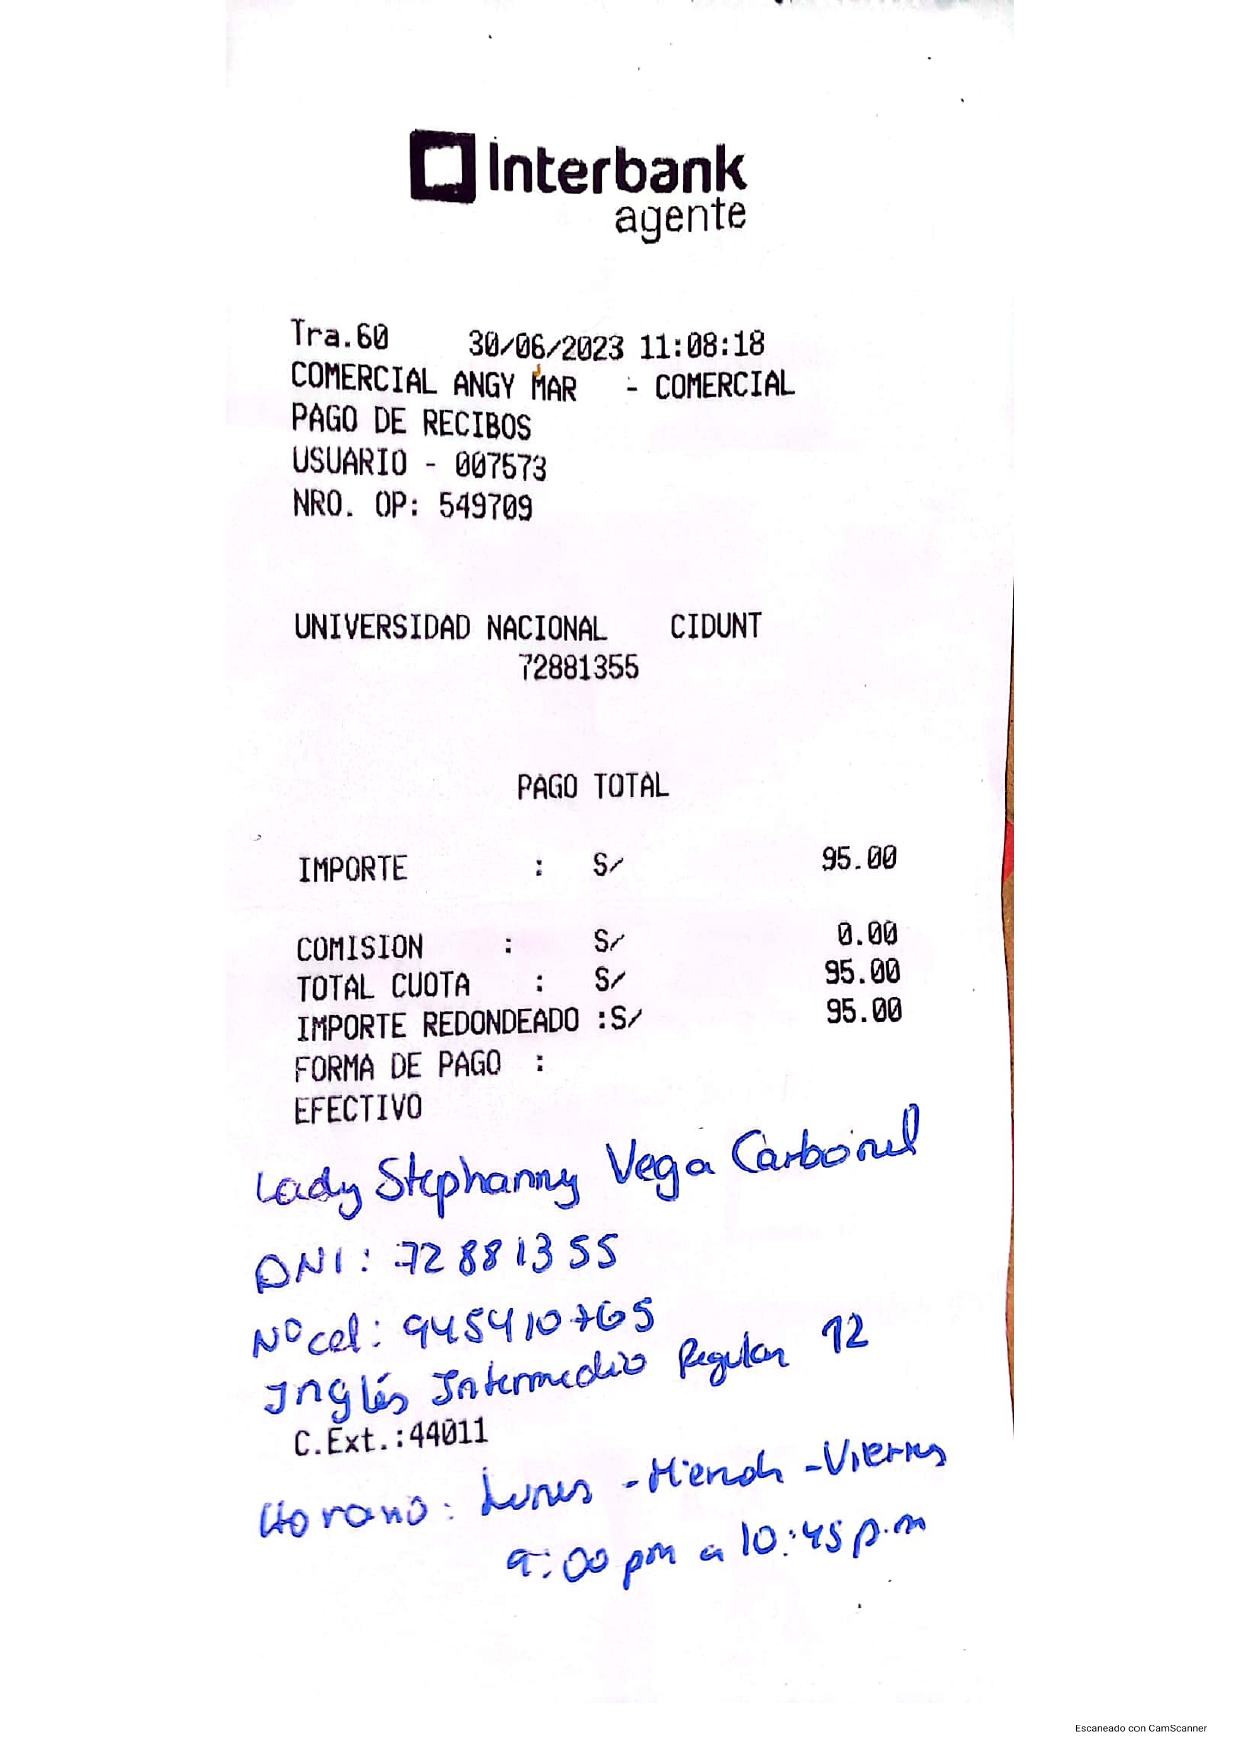 Interbank
agente
Tra.60 30/06/2023 11:08:18
COMERCIAL ANGY MAR - COMERCIAL
PAGO DE RECIBOS
USUARIO - 007573
NRO. OP: 549709
UNIVERSIDAD NACIONAL CIDUNT
72881355
PAGO TOTAL
IMPORTE : S/ 95.00
COMISION : S/ 0.00
TOTAL CUOTA : S/ 95.00
IMPORTE REDONDEADO :S/ 95.00
FORMA DE PAGO :
EFECTIVO
Lady Stephanny Vega Carbonel
DNI: 72881355
Nº cel: 945410765
Inglés Intermedio Regular 12
C.Ext.:44011
Horario: Lunes - Miercoles - Viernes
9:00 pm a 10:45 p.m
Escaneado con CamScanner